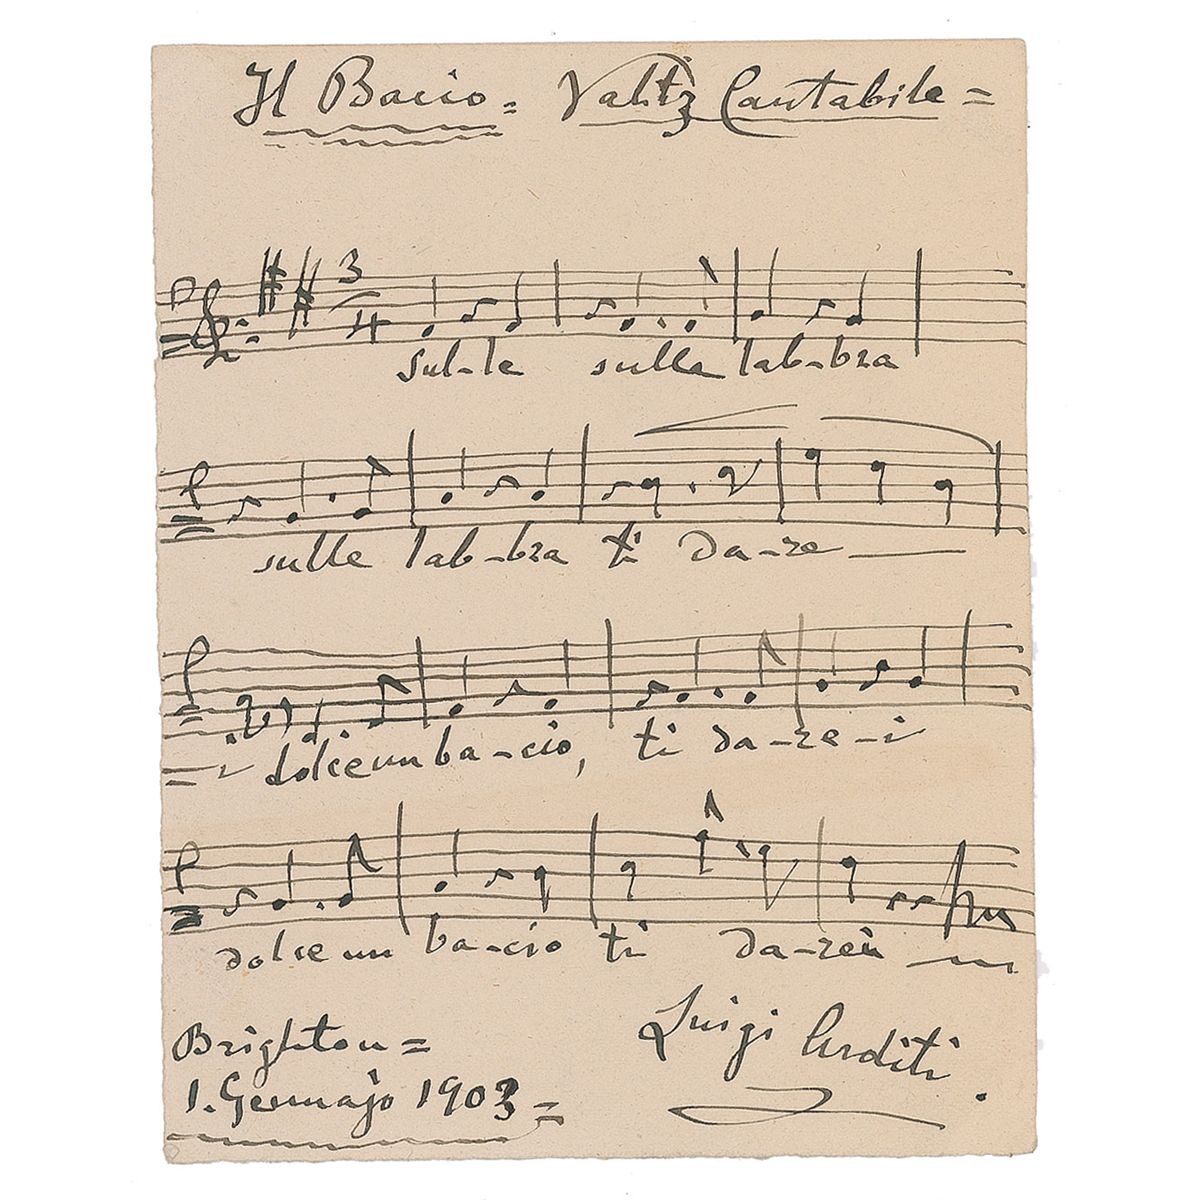 Il Bacio = Valtz Cantabile =
3
4
Sul-le sulle lab-bra
sulle lab-bra ti da-re
dolce un ba-cio, ti da-re-i
dolce un ba-cio ti da-rei
Brighton =
1. Gennajo 1903 =
Luigi Arditi.